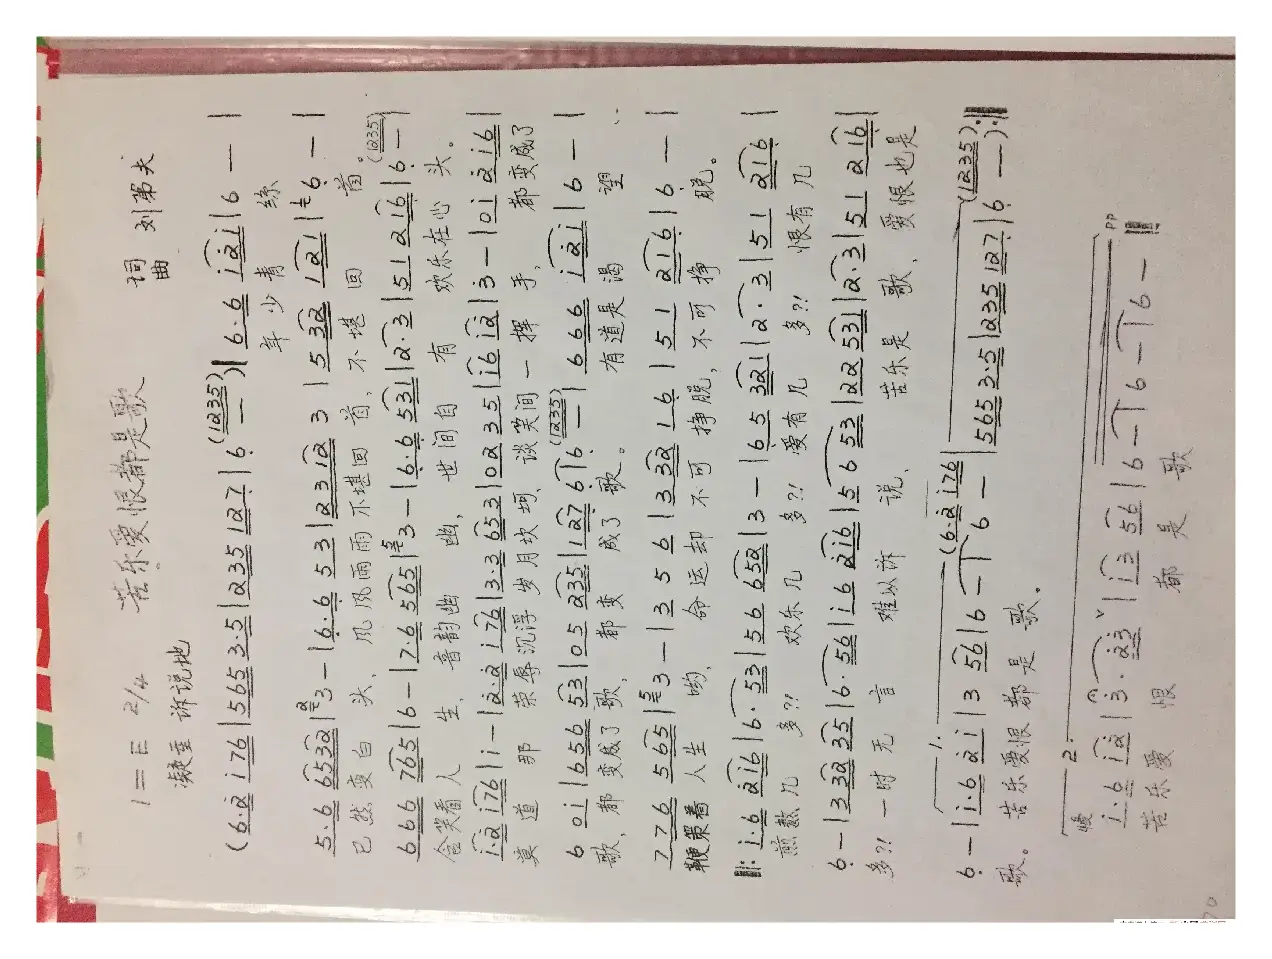 苦乐爱恨都是歌
1=E 2/4
词曲 刘第夫
凝重 诉说地
(6·2 i76 | 5653·5 | 235 127 | 6 (1235) — ) | 6·6 i2i | 6 — |
年少青丝
5·6 6532 | 3 — | 6·6 53 | 2312 3 | 5 32 121 | 6 — |
已然变白头, 风风雨雨不堪回首, 不堪回首。
666 765 | 6 — | 76 565 | 3 — | 6·6 531 | 2·3 | 51 216 | 6 — (1235) |
含笑看人生, 音韵幽幽, 世间自有欢乐在心头。
i·2 i76 | i — | 2·2 i76 | 33 653 | 0235 | i6 i2 | 3 — | 0i 2i6 |
莫道那荣辱沉浮岁月坎坷, 谈笑间一挥手, 都变成了
6 0i | 656 53 | 05 235 | 127 6 | 6 — (1235) | 666 i2i | 6 — |
歌, 都变成了歌, 都变成了歌。 有道是渴望
776 565 | 3 — | 356 | 332 16 | 51 216 | 6 — |
鞭策着人生哟, 命运却不可挣脱, 不可挣脱。
‖: i·6 2i6 | 6·53 | 56 652 | 3 — | 65 321 | 2·3 | 51 216 |
煎熬几多?! 欢乐几多?! 爱有几多?! 恨有几
6 — | 33235 | 6·56 | i6 2i6 | 5653 | 22 531 | 2·3 | 51 216 |
多?! 一时无言难以诉说, 苦乐是歌, 爱恨也是
1.
6 — | i·6 2i | 3 56 | 6 — | 6 — (6·2 i76 | 5653·5 | 235 127 | 6 — (1235) ) :‖
歌。 苦乐爱恨都是歌。
2.
慢 i·6 i2 | 3·23 ∨ | i3 56 | 6 — | 6 — | 6 — pp ‖
苦乐爱恨都是歌